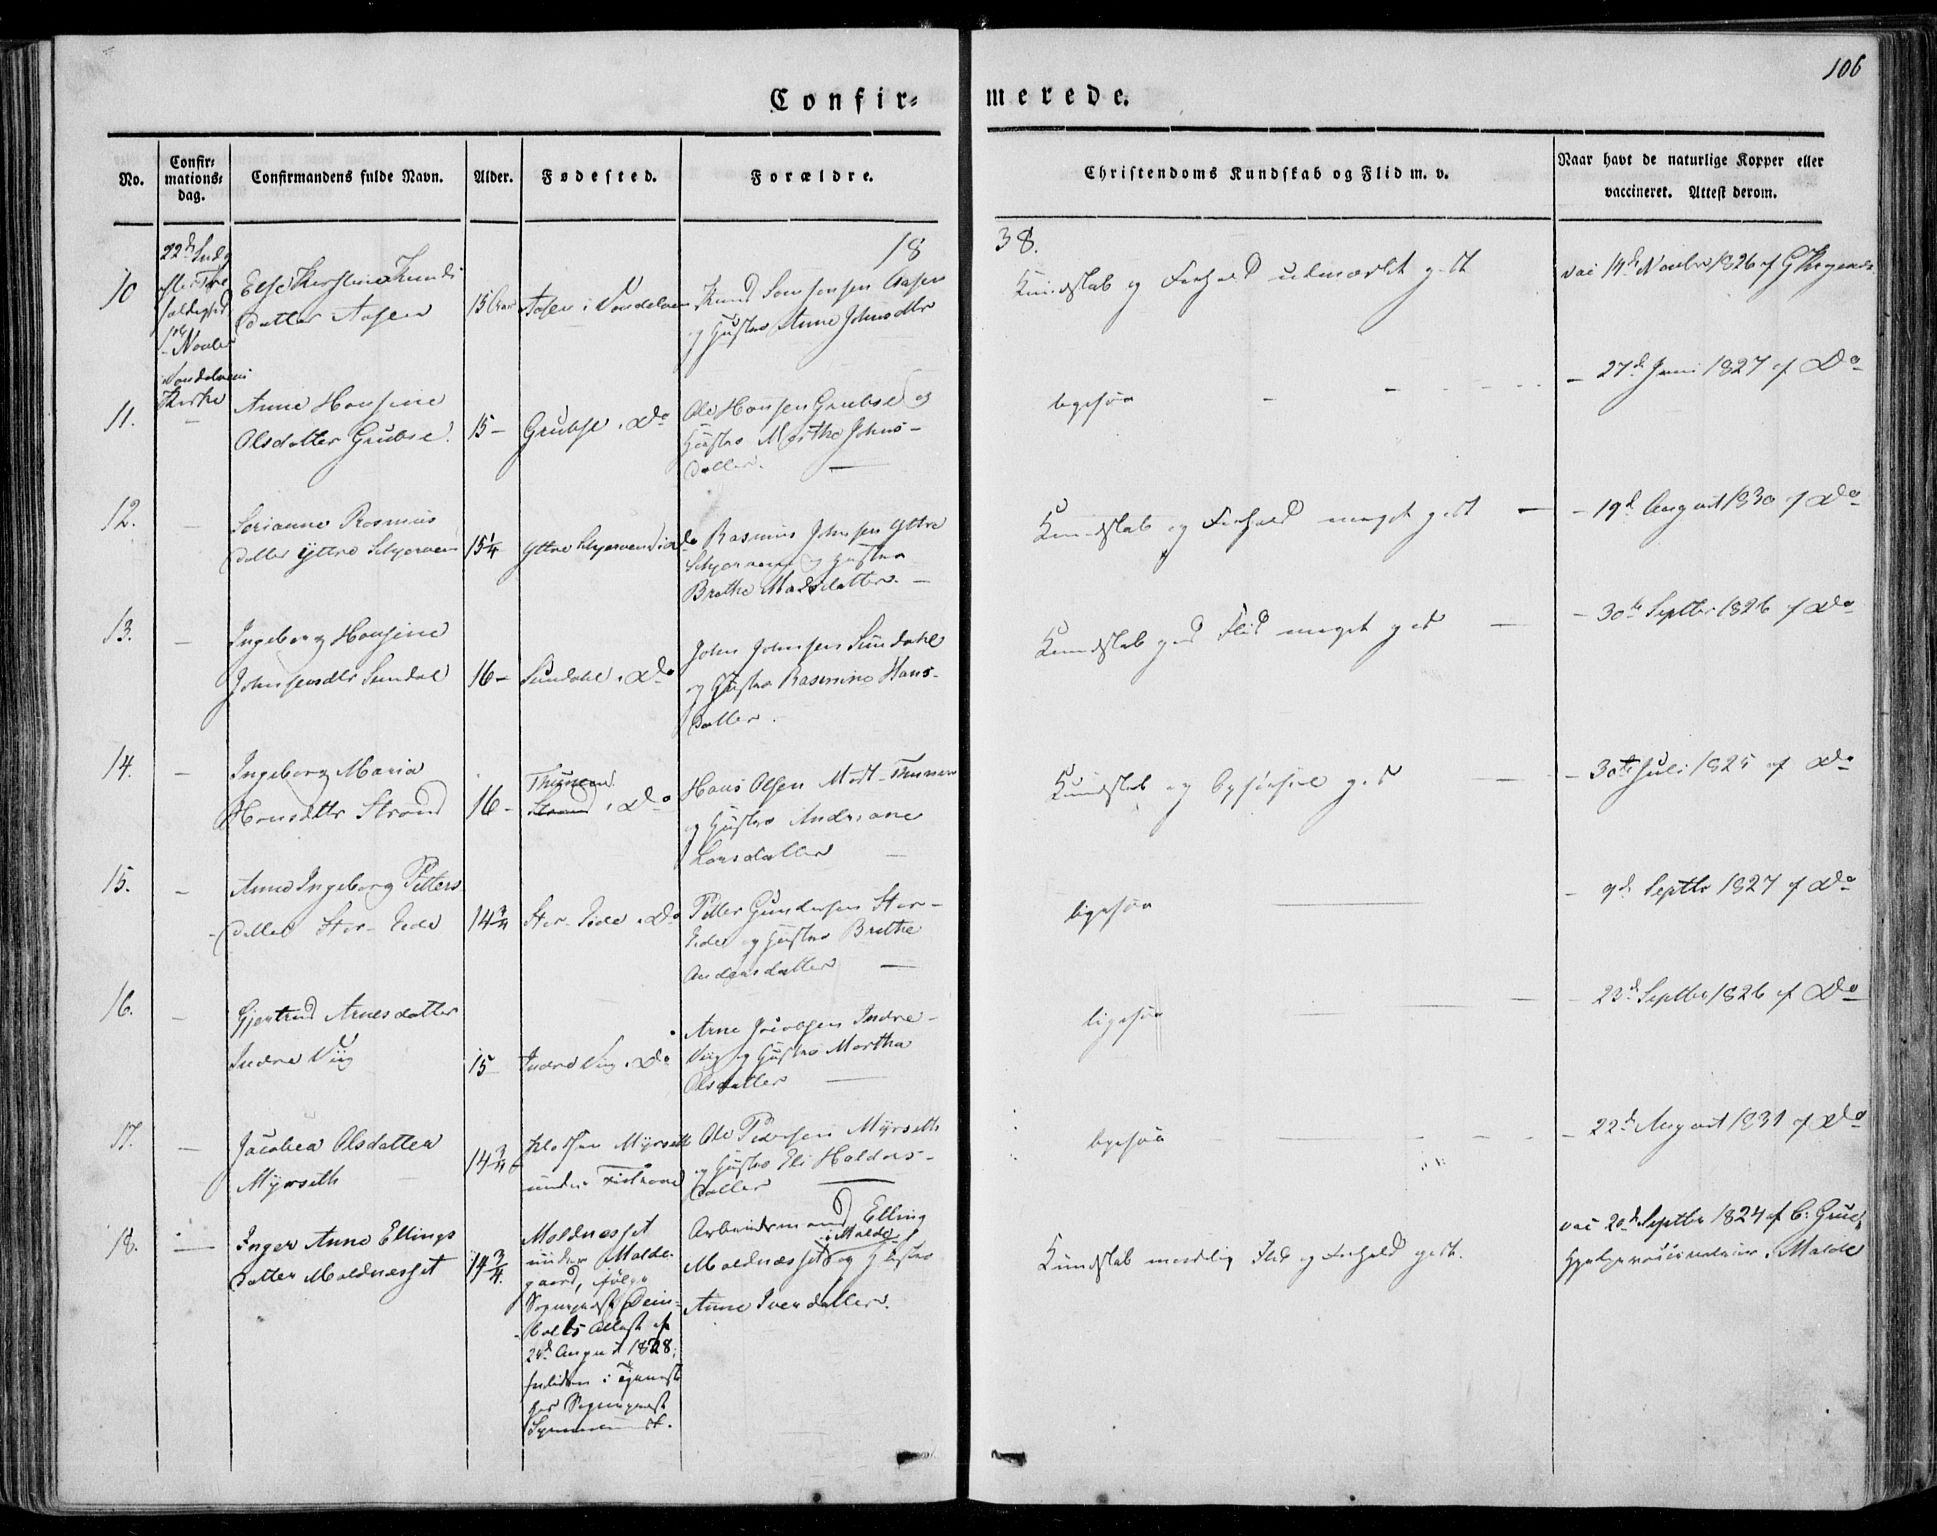 106
Confir= merede.
No.
Confir=
mations=
dag.
Confirmandens fulde Navn.
Alder.
Fødested.
Forældre.
Christendoms Kundskab og Flid m. v.
Naar havt de naturlige Kopper eller
vaccineret. Attest derom.
18 38.
10
22d Sødg
efter Tre
foldighed
Novbr
Kirke
Datter Aasen
Aasen i
og Hustru Anne Johnsdtr
Kundskab og Forhold udmærket godt
vac 14d Novbr 1826 af
11.
Anne Hansine
Olsdatter Grubse
15 –
Grubse i Do
Ole Hansen Grubse og
Hustru Marthe Johns-
datter. –
ligesaa
– 27d Juni 1827 af Do
12.
Serianne Rasmus
datter Yttre
15 1/4
Yttre
Rasmus Johnsen Yttre
og Hustru
Brethe Madsdatter. –
Kundskab og Forhold meget godt
– 19d August 1830 af Do
13.
Ingeborg Hansine
Johnsensdtr Sundal
16 –
Sundahl i Do
John Johnsen Sundahl
og Hustru Rasmine Hans-
datter.
Kundskab god Flid meget god
– 30te Septbr 1826 af Do
14.
Ingeborg Maria
Hansdttr Strand
16 –
Strand i Do
Hans Olsen
og Hustru Andriane
Larsdatter –
Kundskab og Opførsel god
– 30te Juli 1825 af Do
15.
Anne Ingeborg Petters
datter Stor-Eide
14 3/4
Stor-Eide i Do
Petter Gundersen Stor-
Eide og Hustru Brethe
Andersdatter –
ligesaa
– 9d Septbr 1827 af Do
16.
Gjertrud Arnesdatter
Indre Viig
15
Indre Viig i Do
Arne Jacobsen Indre-
Viig og Hustru Martha
Olsdatter –
ligesaa
– 23d Septbr 1826 af Do
17.
Jacobea Olsdatter
Myrseth
14 3/4
Myrseth
under
Ole Pedersen Myrseth
og Hustru Eli Haldors-
datter
ligesaa
– 22d August 1831 af Do
18.
Inger Anne Ellings
datter Moldnæsset
14 3/4.
Moldnæsset
under Molde-
gaard, følge
Sognepræst Dein-
bolls Attest af
24d August 1828;
i Tjeneste
hos Sognepræst
Arbeidsmand Elling
i Molde
Moldnæsset og Hustru
Anne Iversdatter.
Kundskab maadelig Flid og Forhold godt.
vac 20d Septbr 1824 af C.
i Molde